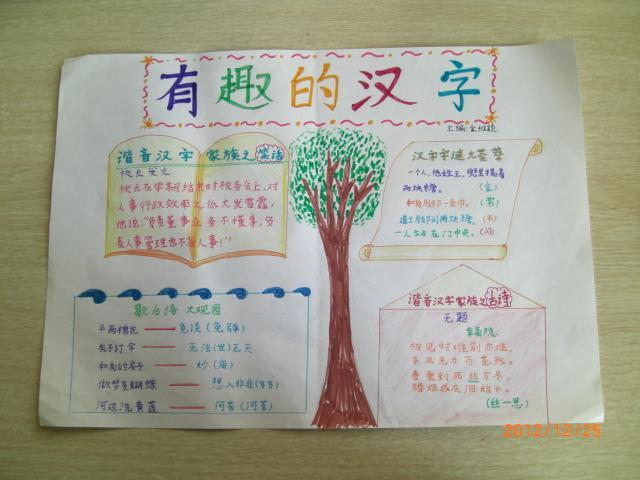 有趣的汉字
主编:金
谐音汉字 家族之 笑话
校长发之
校长在学期结束时校务会上,对
人事行政效率之低大发雷霆,
他说:"负责董事业务不懂事;负
责人事管理也不省人事!"
汉字字谜大荟萃
一个人,他姓王,兜里揣着
两块糖。 (金)
和角那下一条
一人站在门中央。(闪)
歇后语 大观园
免谈(免弹)
无法(发)无天
和尚的房子 —— 妙(庙)
做梦变蝴蝶 —— 想入非非(飞飞)
河边洗黄莲 —— 何苦(河苦)
谐音汉字家族之古诗
无题
李商隐
相见时难别亦难,
东风无力百花残。
春蚕到死丝方尽,
蜡炬成灰泪始干。
(丝—思)
2012/12/25